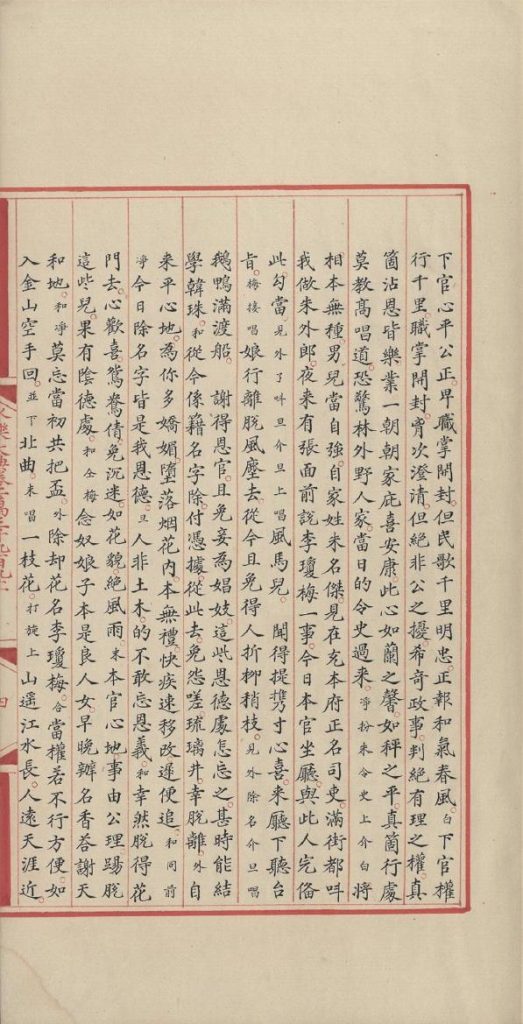 下官心平公正。早職掌開封。但民歌千里明忠。正報和氣春風。白下官權
行千里。職掌開封。宵次澄清。但絕非公之擾。希奇政事。判絕有理之權。真
箇沾恩皆樂業。一朝朝家庇喜安康。此心如蘭之馨。如秤之平。真箇行處
莫教髙唱道。恐驚林外野人家。當日的令史過来。淨扮朱令史上介白將
相本無種。男兒當自強。自家姓朱名傑。見在充本府正名司吏。滿街都呌
我做朱外郎。夜来有張面前說李瓊梅一事。今日本官坐廳。與此人完俻
此勾當。見外了呌旦介旦上唱風馬兒。聞得提攜寸心喜。来廳下聽台
㫖。梅接唱娘行離脱風塵去。從今且免得人折柳稍枝。見外除名介旦唱
鵝鴨滿渡船。謝得恩官。且免妾為娼妓。這些恩德處怎忘之。甚時能結
學韓珠。和從今係籍名字除。付憑據。從此去。免怨嗟琉璃井。幸脱離。外自
来平心地。為你多嬌媚。墮落烟花内。本無禮。快疾速移改遲便追。和同前
淨今日除名字。皆是我恩德。旦人非土木。的不敢忘恩義。和幸然脱得花
門去。心歡喜。鴛鴦倩免沉迷。如花貌。絕風雨末本官心地。事由公理踢脱
這些兒。果有陰德處。和仝梅念奴娘子本是良人女。早晚辦名香荅謝天
和地。和淨莫忘當初共把盃。外除却花名李瓊梅。合當權若不行方便。如
入金山空手回。並下北曲。末唱一枝花。打㨪上山遥江水長。人遠天涯近。
四